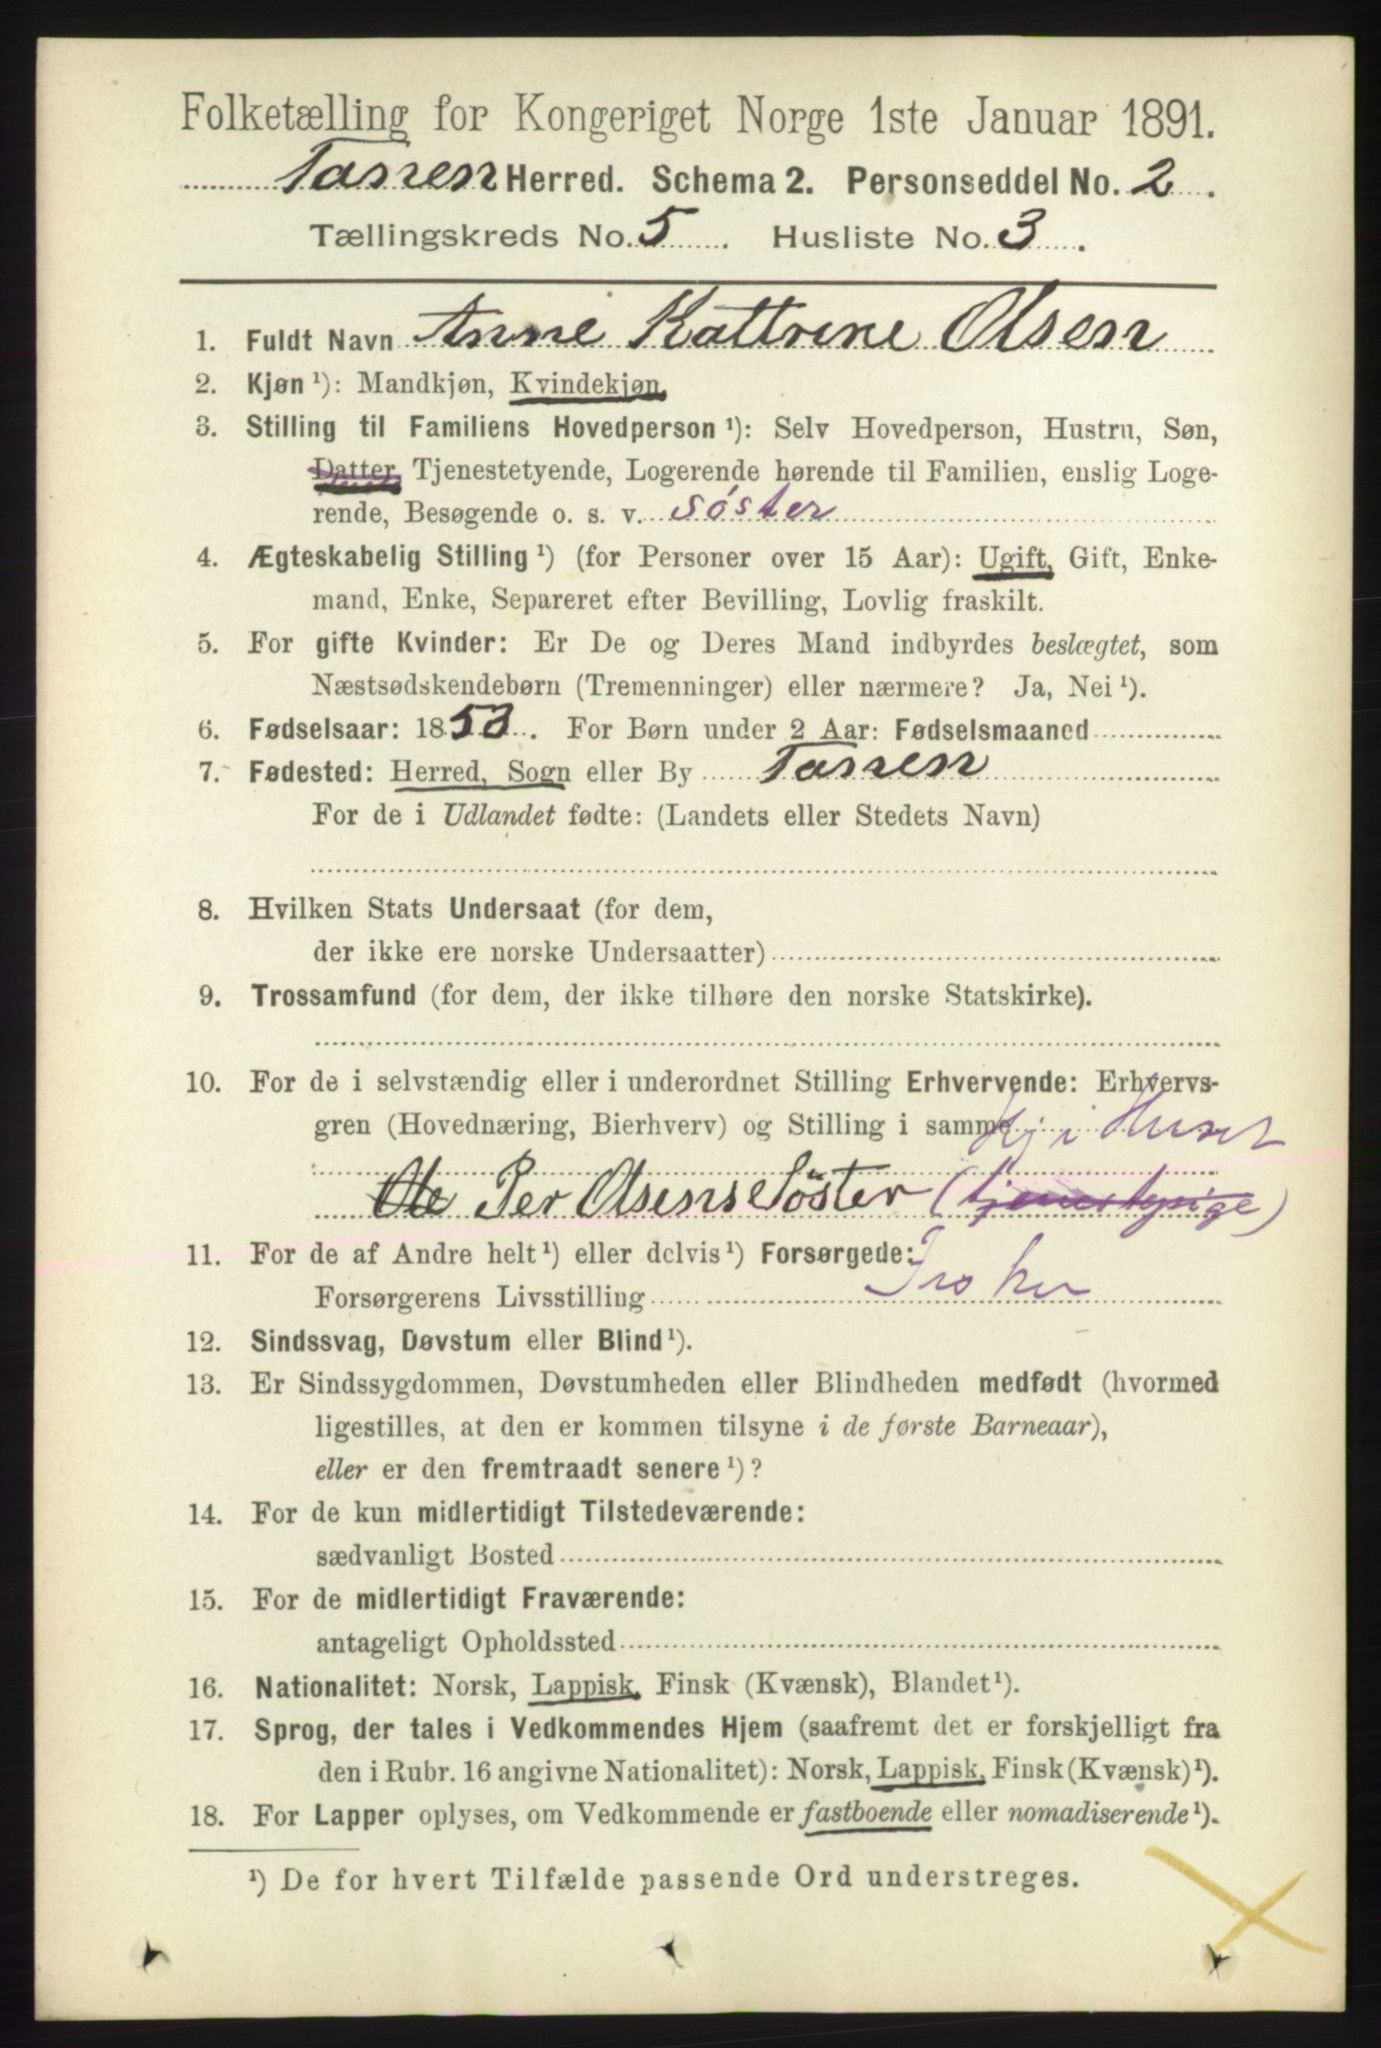 Folketælling for Kongeriget Norge 1ste Januar 1891.
Tannen Herred. Schema 2. Personseddel No. 2.
Tællingskreds No. 5. Husliste No. 3.
1. Fuldt Navn Anne Kattrine Olsen
2. Kjøn ¹): Mandkjøn, Kvindekjøn.
3. Stilling til Familiens Hovedperson ¹): Selv Hovedperson, Hustru, Søn,
Datter, Tjenestetyende, Logerende hørende til Familien, enslig Loge-
rende, Besøgende o. s. v. søster
4. Ægteskabelig Stilling ¹) (for Personer over 15 Aar): Ugift, Gift, Enke-
mand, Enke, Separeret efter Bevilling, Lovlig fraskilt.
5. For gifte Kvinder: Er De og Deres Mand indbyrdes beslægtet, som
Næstsødskendebørn (Tremenninger) eller nærmere? Ja, Nei ¹).
6. Fødselsaar: 1853. For Børn under 2 Aar: Fødselsmaaned
7. Fødested: Herred, Sogn eller By Tannen
For de i Udlandet fødte: (Landets eller Stedets Navn)
8. Hvilken Stats Undersaat (for dem,
der ikke ere norske Undersaatter)
9. Trossamfund (for dem, der ikke tilhøre den norske Statskirke).
10. For de i selvstændig eller i underordnet Stilling Erhvervende: Erhvervs-
gren (Hovednæring, Bierhverv) og Stilling i samme Hj i Huset
Ole Per Olsens Söster (tjenestepige)
11. For de af Andre helt ¹) eller delvis ¹) Forsørgede:
Forsørgerens Livsstilling
12. Sindssvag, Døvstum eller Blind ¹).
13. Er Sindssygdommen, Døvstumheden eller Blindheden medfødt (hvormed
ligestilles, at den er kommen tilsyne i de første Barneaar),
eller er den fremtraadt senere ¹)?
14. For de kun midlertidigt Tilstedeværende:
sædvanligt Bosted
15. For de midlertidigt Fraværende:
antageligt Opholdssted
16. Nationalitet: Norsk, Lappisk, Finsk (Kvænsk), Blandet ¹).
17. Sprog, der tales i Vedkommendes Hjem (saafremt det er forskjelligt fra
den i Rubr. 16 angivne Nationalitet): Norsk, Lappisk, Finsk (Kvænsk) ¹).
18. For Lapper oplyses, om Vedkommende er fastboende eller nomadiserende ¹).
¹) De for hvert Tilfælde passende Ord understreges.